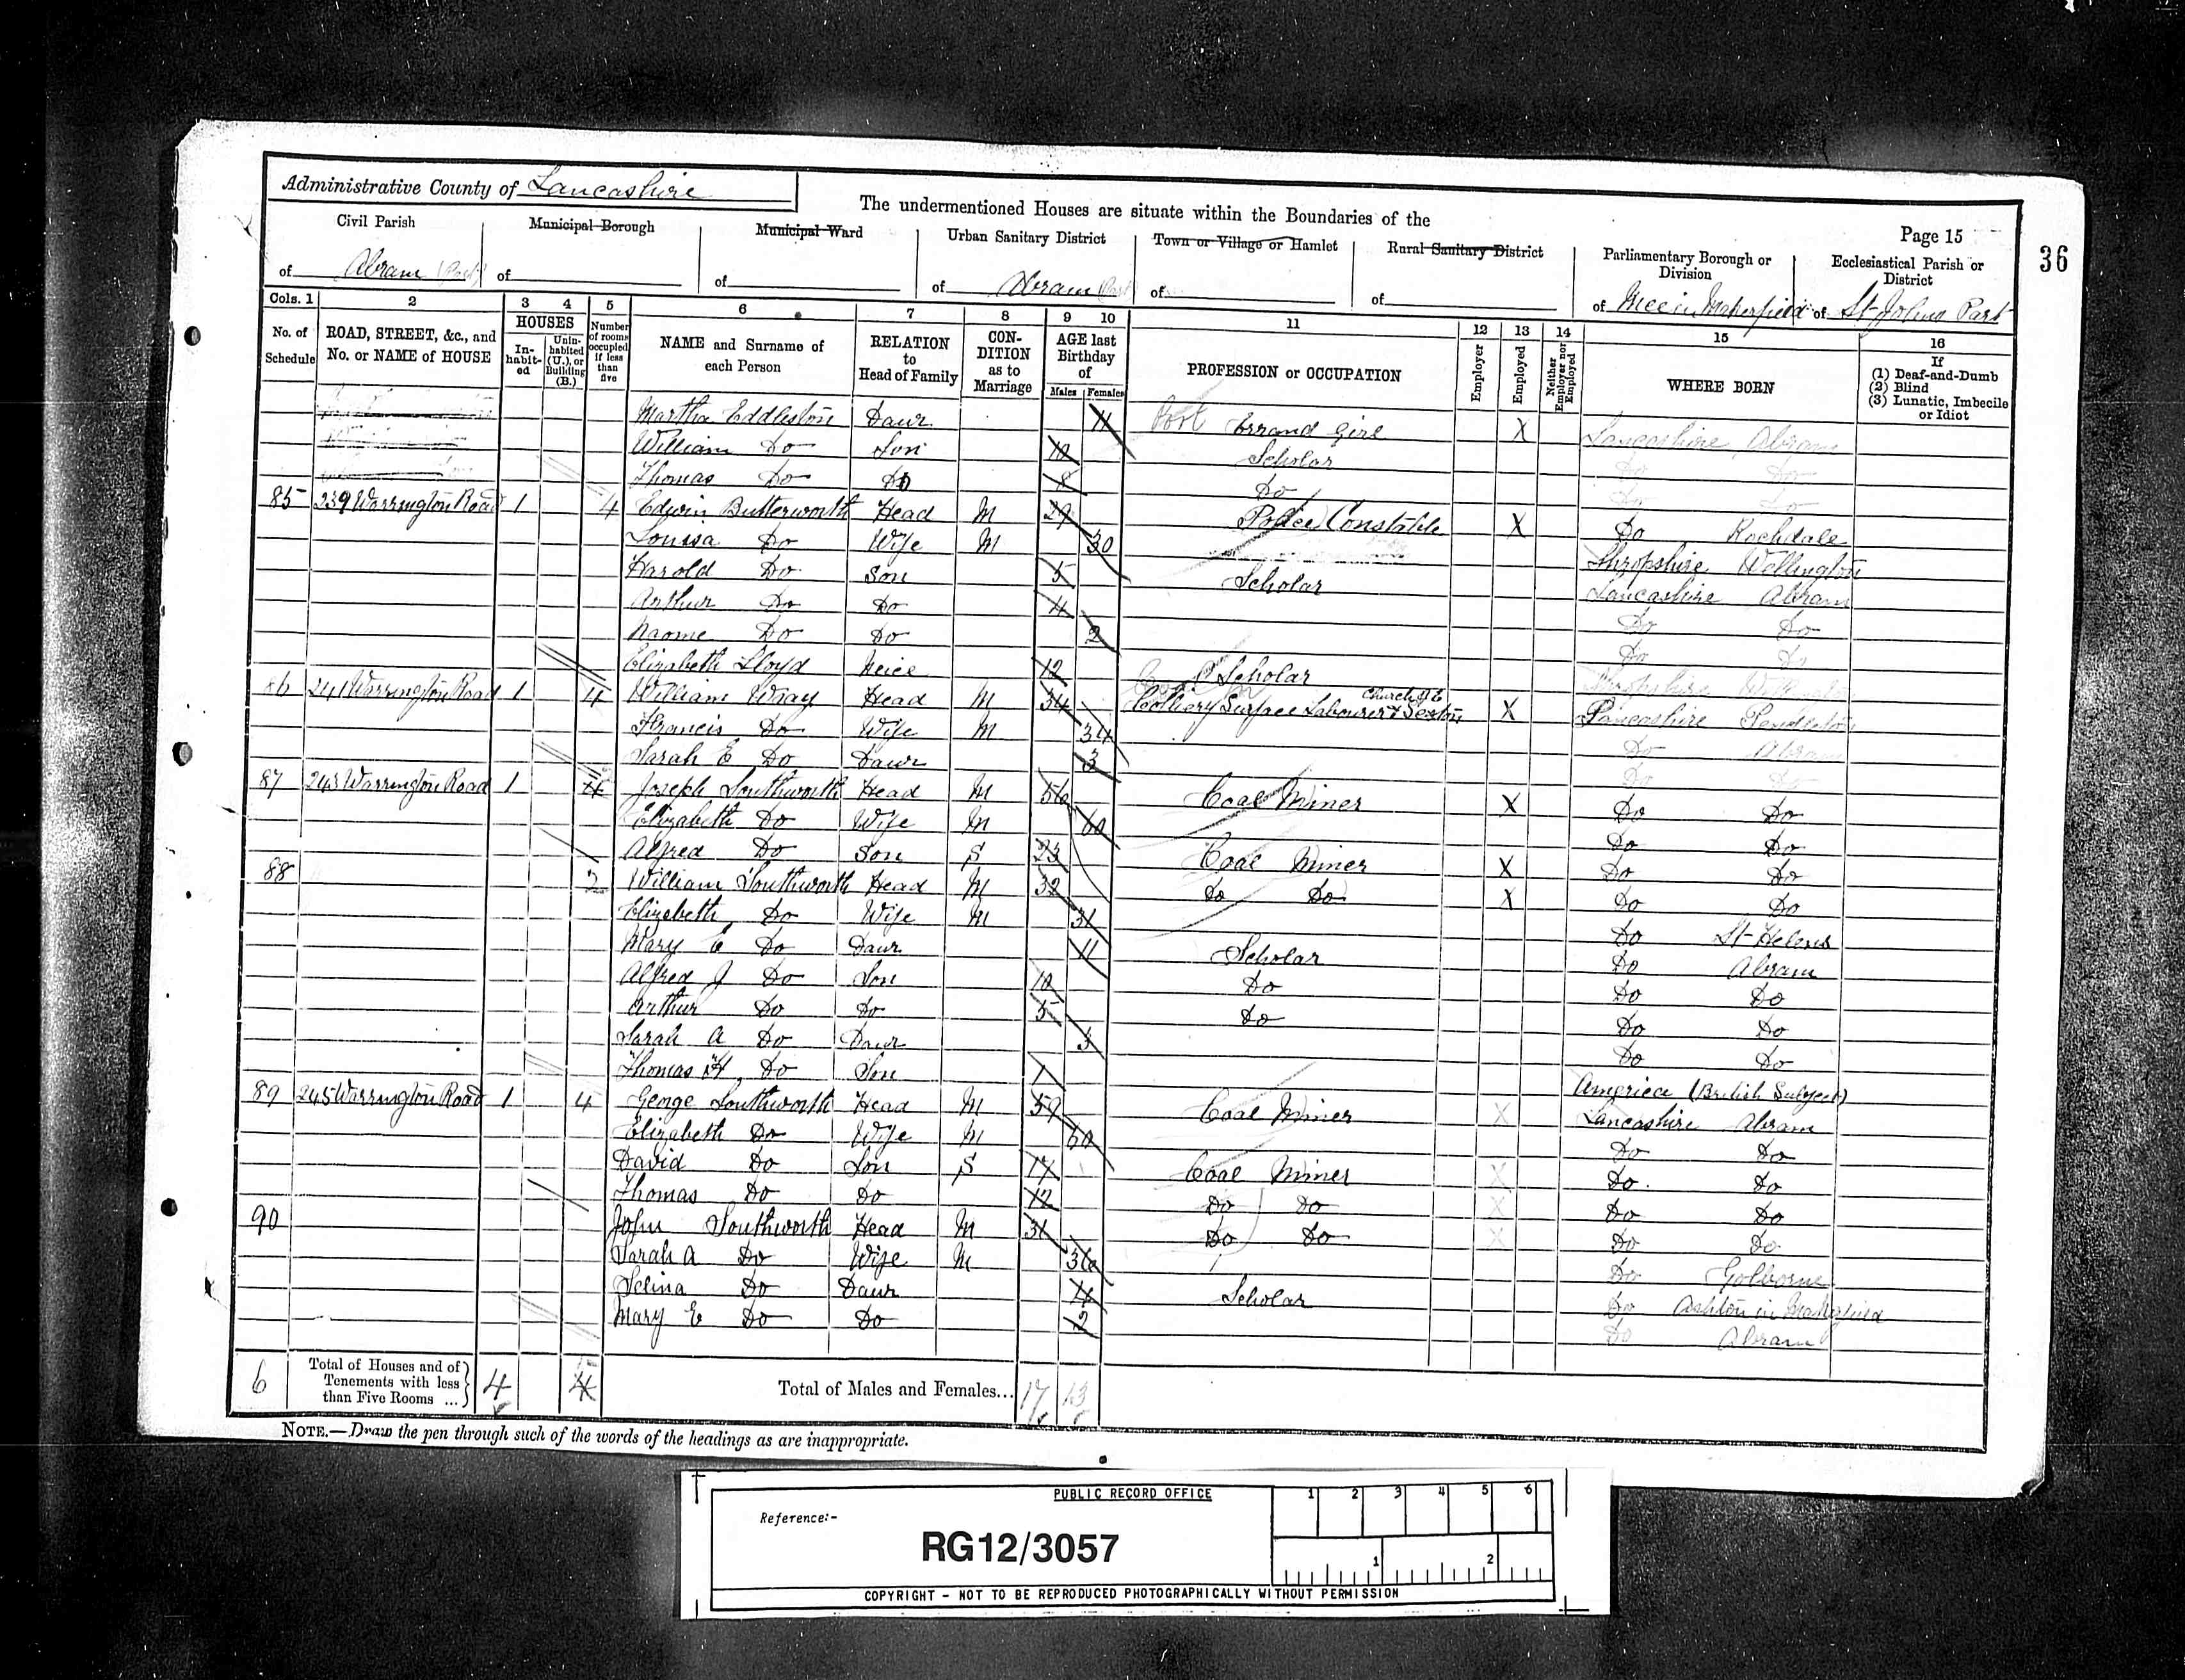 Administrative County of Lancashire
The undermentioned Houses are situate within the Boundaries of the
Page 15
36
Civil Parish of Abram (Part)
Municipal Borough of
Municipal Ward of
Urban Sanitary District of Abram (Part
Town or Village or Hamlet of
Rural Sanitary District of
Parliamentary Borough or Division of
Ecclesiastical Parish or District of St Johns Part
Cols. 1 2 3 4 5 6 7 8 9 10 11 12 13 14 15 16
No. of Schedule
ROAD, STREET, &c., and No. or NAME of HOUSE
HOUSES
In-habit-ed
Unin-habited (U.), or Building (B.)
Number of rooms occupied if less than five
NAME and Surname of each Person
RELATION to Head of Family
CON-DITION as to Marriage
AGE last Birthday of
Males Females
PROFESSION or OCCUPATION
Employer
Employed
Neither Employer nor Employed
WHERE BORN
If (1) Deaf-and-Dumb (2) Blind (3) Lunatic, Imbecile or Idiot
Martha Eddleston Daur 11 Errand Girl X Lancashire Abram
William Do Son 10 Scholar Do Do
Thomas Do Do 8 Do Do Do
85 239 Warrington Road 1 4 Edwin Butterworth Head M 29 Police Constable X Do Rochdale
Louisa Do Wife M 30 Shropshire Wellington
Harold Do Son 5 Scholar Lancashire Abram
Arthur Do Do 4 Do Do
Naome Do Do 2 Do Do
Elizabeth Lloyd Neice 12 Scholar Shropshire Wellington
86 241 Warrington Road 1 4 William Wray Head M 34 Colliery Surface Labourer & Sexton X Lancashire Pendleton
Francis Do Wife M 34 Do Abram
Sarah E Do Daur 3 Do Do
87 243 Warrington Road 1 4 Joseph Southworth Head M 56 Coal Miner X Do Do
Elizabeth Do Wife M 60 Do Do
Alfred Do Son S 23 Coal Miner X Do Do
88 2 William Southworth Head M 32 Do Do X Do Do
Elizabeth Do Wife M 31 Do St Helens
Mary E Do Daur 11 Scholar Do Abram
Alfred J Do Son 10 Do Do Do
Arthur Do Do 5 Do Do Do
Sarah A Do Daur 3 Do Do
Thomas H Do Son 1 America (British Subject)
89 245 Warrington Road 1 4 George Southworth Head M 59 Coal Miner X Lancashire Abram
Elizabeth Do Wife M 60 Do Do
David Do Son S 17 Coal Miner X Do Do
Thomas Do Do 12 Do Do X Do Do
90 John Southworth Head M 31 Do Do X Do Do
Sarah A Do Wife M 36 Do Golborne
Selina Do Daur 4 Scholar Do Ashton in Makerfield
Mary E Do Do 2 Do Abram
6 Total of Houses and of Tenements with less than Five Rooms ... 4 4 Total of Males and Females... 17 13
NOTE.—Draw the pen through such of the words of the headings as are inappropriate.
PUBLIC RECORD OFFICE
1 2 3 4 5 6
Reference:-
RG12/3057
1 2
COPYRIGHT - NOT TO BE REPRODUCED PHOTOGRAPHICALLY WITHOUT PERMISSION